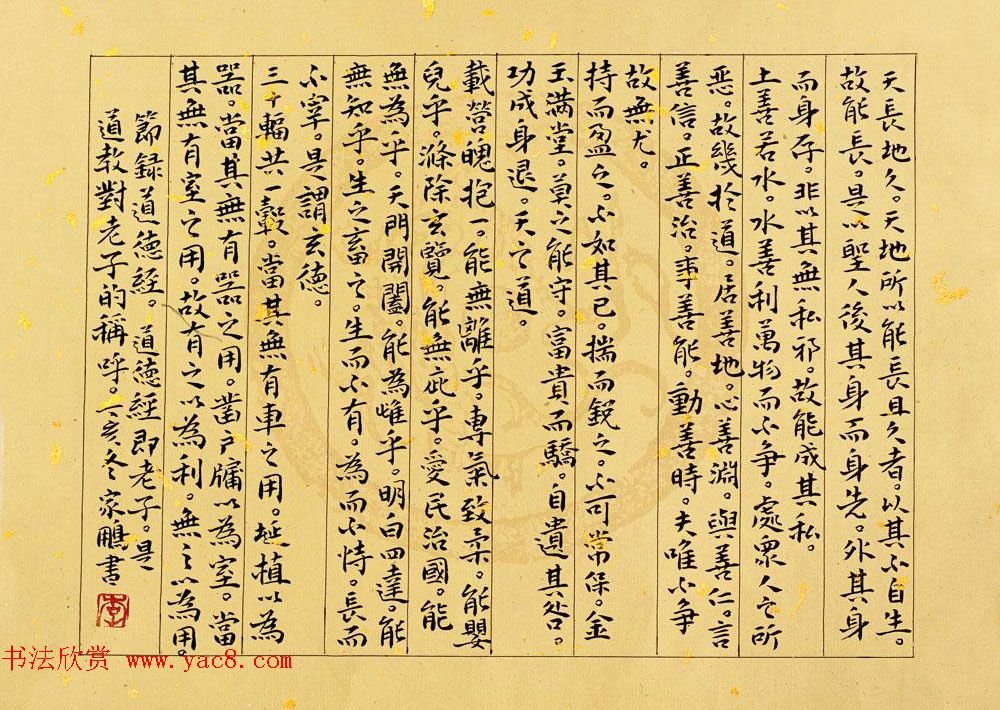 天長地久。天地所以能長且久者。以其不自生。
故能長。是以聖人後其身而身先。外其身
而身存。非以其無私邪。故能成其私。
上善若水。水善利萬物而不争。處衆人之所
恶。故幾於道。居善地。心善淵。與善仁。言
善信。正善治。事善能。動善時。夫唯不争
故無尤。
持而盈之。不如其已。揣而銳之。不可常保。金
玉满堂。莫之能守。富貴而驕。自遺其咎。
功成身退。天之道。
載營魄抱一。能無離乎。專氣致柔。能嬰
兒乎。滌除玄覽。能無疵乎。愛民治國。能
無為乎。天門開闔。能為雌乎。明白四達。能
無知乎。生之畜之。生而不有。為而不恃。長而
不宰。是謂玄德。
三十輻共一轂。當其無有車之用。埏植以為
器。當其無有器之用。凿户牖以為室。當
其無有室之用。故有之以為利。無之以為用。
節録道德經。道德經即老子。是
道教對老子的稱呼。丁亥冬家鵬書
李
书法欣赏 www.yac8.com